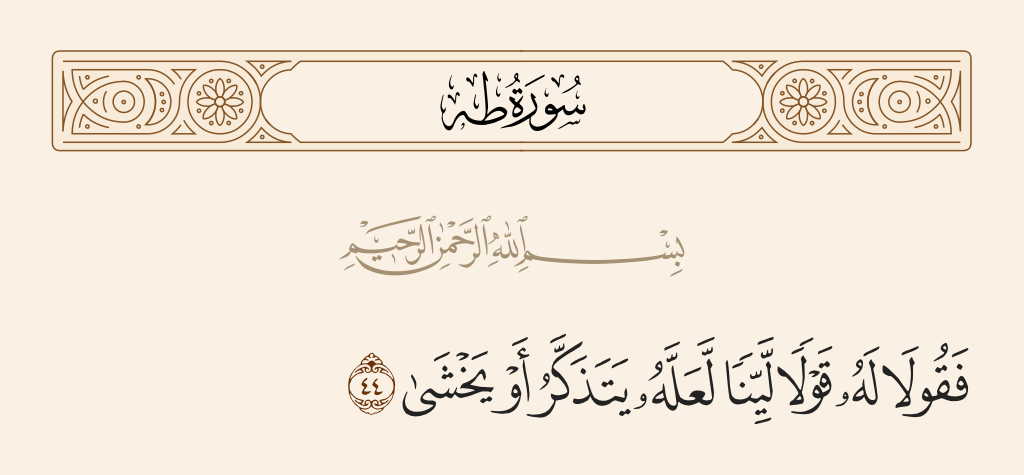 سُورَةُ طه
بِسْمِ ٱللَّهِ ٱلرَّحْمَٰنِ ٱلرَّحِيمِ
فَقُولَا لَهُۥ قَوْلًا لَّيِّنًا لَّعَلَّهُۥ يَتَذَكَّرُ أَوْ يَخْشَىٰ ٤٤